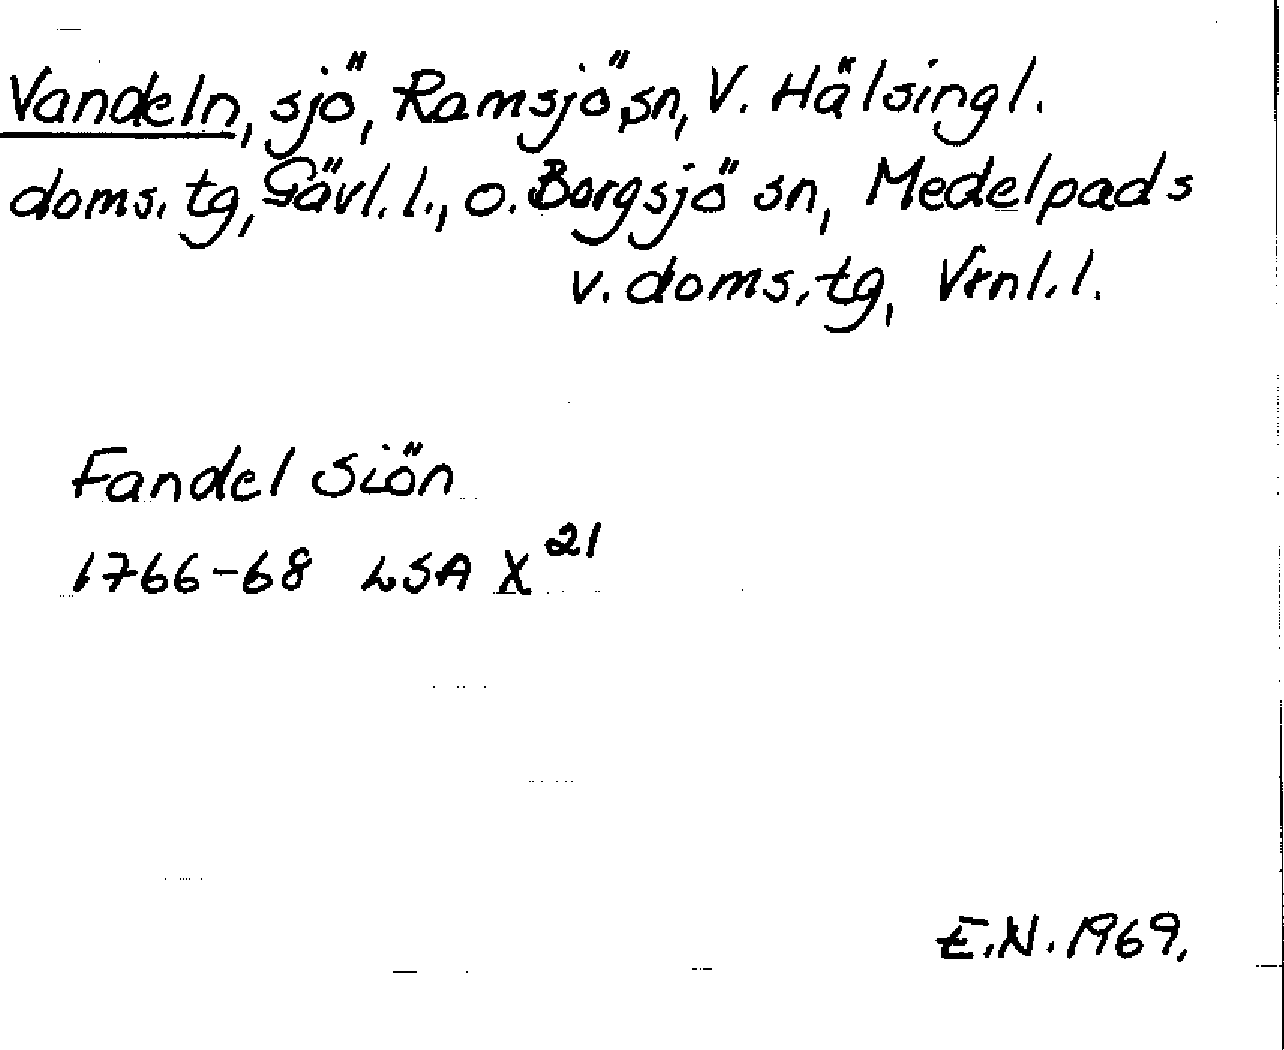 Vandeln, sjö, Ramsjö sn, V. Hälsingl.
doms. tg, Gävl. l., o. Borgsjö sn, Medelpads
v. doms. tg, Vrnl. l.
Fandel Siön
1766-68 LSA X 21
E.N. 1969.